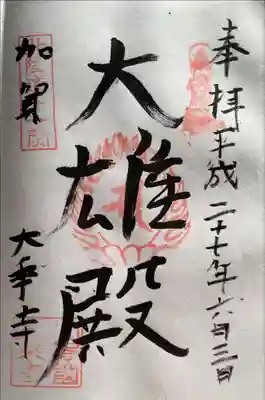 奉拝 平成二十七年六月三日
大雄殿
加賀
大乘寺